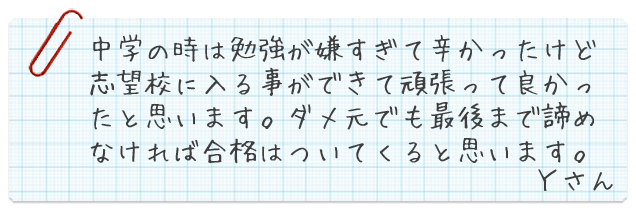 中学の時は勉強が嫌すぎて辛かったけど
志望校に入る事ができて頑張って良かっ
たと思います。ダメ元でも最後まで諦め
なければ合格はついてくると思います。
Yさん